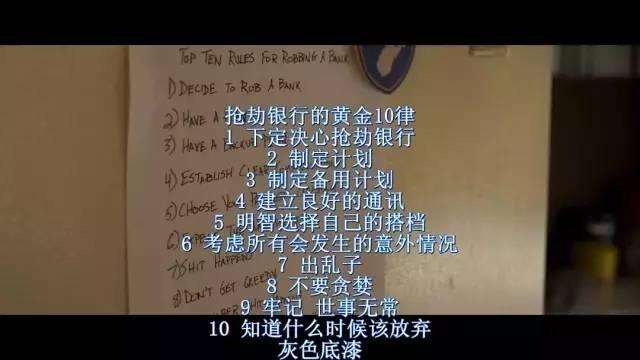 TOP TEN RULES FOR ROBBING A BANK
1) DECIDE TO ROB A BANK
2) HAVE A
3) HAVE A BACKUP
4) ESTABLISH CLEAR
5) CHOOSE YOUR
6)
7) SHIT HAPPENS
8) DON'T GET GREEDY
抢劫银行的黄金10律
1 下定决心抢劫银行
2 制定计划
3 制定备用计划
4 建立良好的通讯
5 明智选择自己的搭档
6 考虑所有会发生的意外情况
7 出乱子
8 不要贪婪
9 牢记 世事无常
10 知道什么时候该放弃
灰色底漆